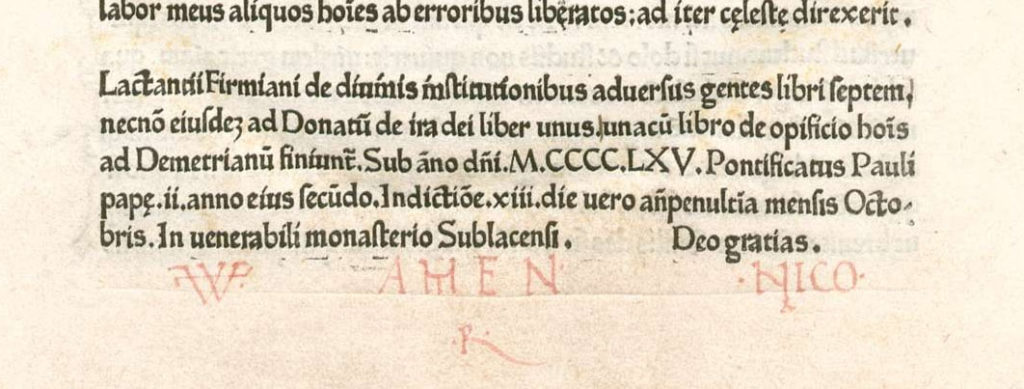 labor meus aliquos hoīes ab erroribus libęratos: ad iter cęlestę direxerit.
Lactantii Firmiani de diuinis institutionibus aduersus gentes libri septem,
necnō eiusdeꝫ ad Donatū de ira dei liber unus, unacū libro de opificio hoīs
ad Demetrianū finiunt̄. Sub āno dn̄i. M.CCCC.LXV. Pontificatus Pauli
papę. ii. anno eius secūdo. Indictiōe. xiii. die uero an̄penultīa mensis Octo-
bris. In uenerabili monasterio Sublacensi. Deo gratias.
AMEN · NICO·